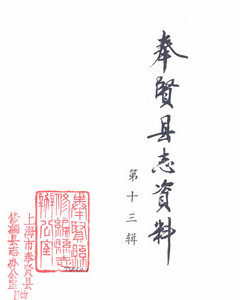 奉贤县志資料
第十三辑
奉賢縣
修編縣志
辦公室
上海市奉贤县
修编县志办公室